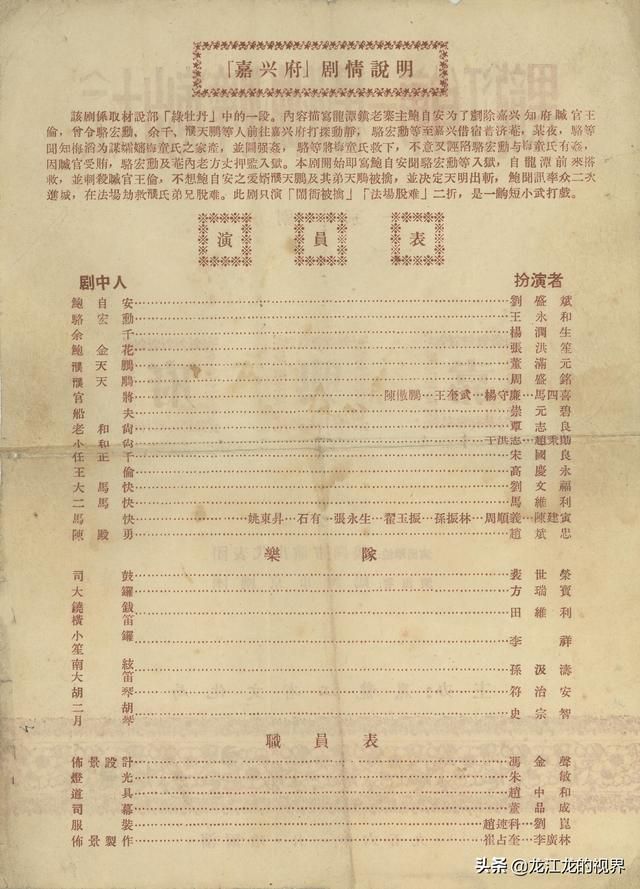 「嘉兴府」剧情說明
該剧係取材說部「綠牡丹」中的一段。內容描寫龍潭鎮老寨主鮑自安为了剷除嘉兴知府贓官王
倫，曾令駱宏勳、余千、濮天鵬等人前往嘉兴府打探動靜，駱宏勳等至嘉兴借宿普济菴，某夜，駱等
聞知梅滔为謀孀嬸梅童氏之家產，並圖强姦，駱等將梅童氏救下，不意又誣陷駱宏勳与梅童氏有姦，
因贓官受賄，駱宏勳及菴內老方丈押監入獄。本剧開始即寫鮑自安聞駱宏勳等入獄，自龍潭前來搭
救，並刺殺贓官王倫，不想鮑自安之爱婿濮天鵬及其弟天鵰被擒，並決定天明出斬，鮑聞訊率众二次
進城，在法場劫救濮氏弟兄脫难。此剧只演「鬧衙被擒」「法場脫难」二折，是一齣短小武打戲。
演 員 表
剧中人 扮演者
鮑自安 劉盛斌
駱宏勳 王永和
余千 楊潤生
鮑金花 張洪笙
濮天鵬 董滿元
濮天鵰 周盛銘
官將 陳傲鵬 王奎武 楊守廉 馬四喜
船夫 崇元碧
老和尙 覃志良
小和尙 于洪志 趙秉勛
任正千 宋國良
王倫 高慶永
大馬快 劉文福
二馬快 馬維利
馬快 姚東昇 石有 張永生 翟玉振 孫振林 周順義 陳建寅
陳殿勇 趙斌忠
樂 隊
司鼓 裴世榮
大鑼 方瑞寶
鐃鈸
橫笛 田維利
小鑼
笙 李祥
南絃
大笛 孫汲濤
胡琴 符治安
二胡
月琴 史宗智
職 員 表
佈景設計 馮金聲
燈光 朱敏
道具 趙中和
司幕 董品成
服裝 趙連科 劉崑
佈景製作 崔占奎 李廣林
头条 @龙江龙的视界